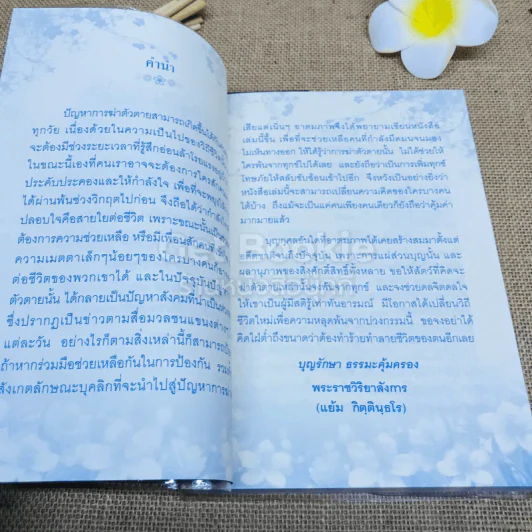 คำนำ
ปัญหาการฆ่าตัวตายสามารถเกิดขึ้นได้
ทุกวัย เนื่องด้วยในความเป็นไปของวิถีชีวิต
จะต้องมีช่วงระยะเวลาที่รู้สึกอ่อนล้าโรยแรง
ในขณะนี้เองที่คนเราอาจจะต้องการใคร
ประคับประคองและให้กำลังใจ เพื่อที่จะ
ได้ผ่านพ้นช่วงวิกฤตไปก่อน จึงถือได้ว่า
ปลอบใจคือสายใยต่อชีวิต เพราะขณะนั้น
ต้องการความช่วยเหลือ หรือมีเพื่อนสัก
ความเมตตาเล็กๆน้อยๆของใครบางคน
ต่อชีวิตของพวกเขาได้ และในปัจจุบัน
ตัวตายนั้น ได้กลายเป็นปัญหาสังคมที่น่า
ซึ่งปรากฏเป็นข่าวตามสื่อมวลชนแขนงต่างๆ
แต่ละวัน อย่างไรก็ตามสิ่งเหล่านี้ก็สามารถ
ถ้าหากร่วมมือช่วยเหลือกันในการป้องกัน
สังเกตลักษณะบุคลิกที่จะนำไปสู่ปัญหาการ
เสียแต่เนิ่นๆ อาตมภาพจึงได้พยายามเขียนหนังสือ
เล่มนี้ขึ้น เพื่อที่จะช่วยเหลือคนที่กำลังมืดมนจนมอง
ไม่เห็นทางออก ให้ได้รู้ว่าการฆ่าตัวตายนั้น ไม่ได้ช่วยให้
ใครพ้นจากทุกข์ไปได้เลย และยังถือว่าเป็นการเพิ่มทุกข์
โทษภัยให้สลับซับซ้อนเข้าไปอีก จึงหวังเป็นอย่างยิ่งว่า
หนังสือเล่มนี้จะสามารถเปลี่ยนความคิดของใครบางคน
ได้บ้าง ถึงแม้จะเป็นแค่คนเพียงคนเดียวก็ยังถือว่าคุ้มค่า
มากมายแล้ว
บุญกุศลอันใดที่อาตมภาพได้เคยสร้างสมมาตั้งแต่
อดีตชาติจนถึงปัจจุบัน เพราะเหตุแผ่ส่วนบุญนั้น และ
ผลานุภาพของสิ่งศักดิ์สิทธิ์ทั้งหลาย ขอให้สัตว์ที่คิดจะ
ฆ่าตัวตายเหล่านั้นจงพ้นจากทุกข์ และจงช่วยดลจิตดลใจ
ให้เขาเป็นผู้มีสติรู้เท่าทันอารมณ์ มีโอกาสได้เปลี่ยนวิถี
ชีวิตใหม่เพื่อความหลุดพ้นจากบ่วงกรรมนี้ ขอจงอย่าได้
คิดใฝ่ต่ำถึงขนาดว่าต้องทำร้ายทำลายชีวิตของตนอีกเลย
บุญรักษา ธรรมะคุ้มครอง
พระราชวิริยาลังการ
(แย้ม กิตฺตินฺธโร)